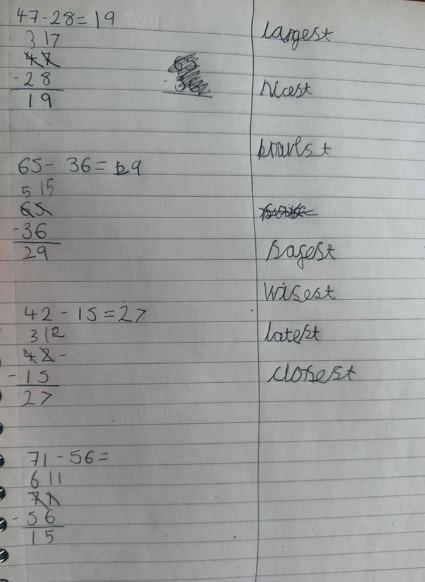 47-28=19
3 17
47
-28
19
65-36=29
5 15
65
-36
29
42-15=27
3 12
42
-15
27
71-56=
6 11
71
-56
15
largest
nicest
latest
wisest
closest